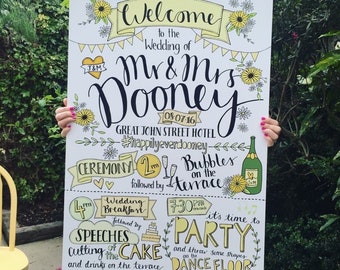 Welcome
to the
Wedding of
J&M
Mr & Mrs
Dooney
GREAT JOHN STREET HOTEL
#happilyeverdooney
CEREMONY
followed by
Bubbles
on the
terrace
Wedding
Breakfast
followed by
SPEECHES
Cutting
of the
CAKE
and drinks on the terrace
7.30pm
it's time to
PARTY
and throw some shapes
on the
DANCE FLOOR